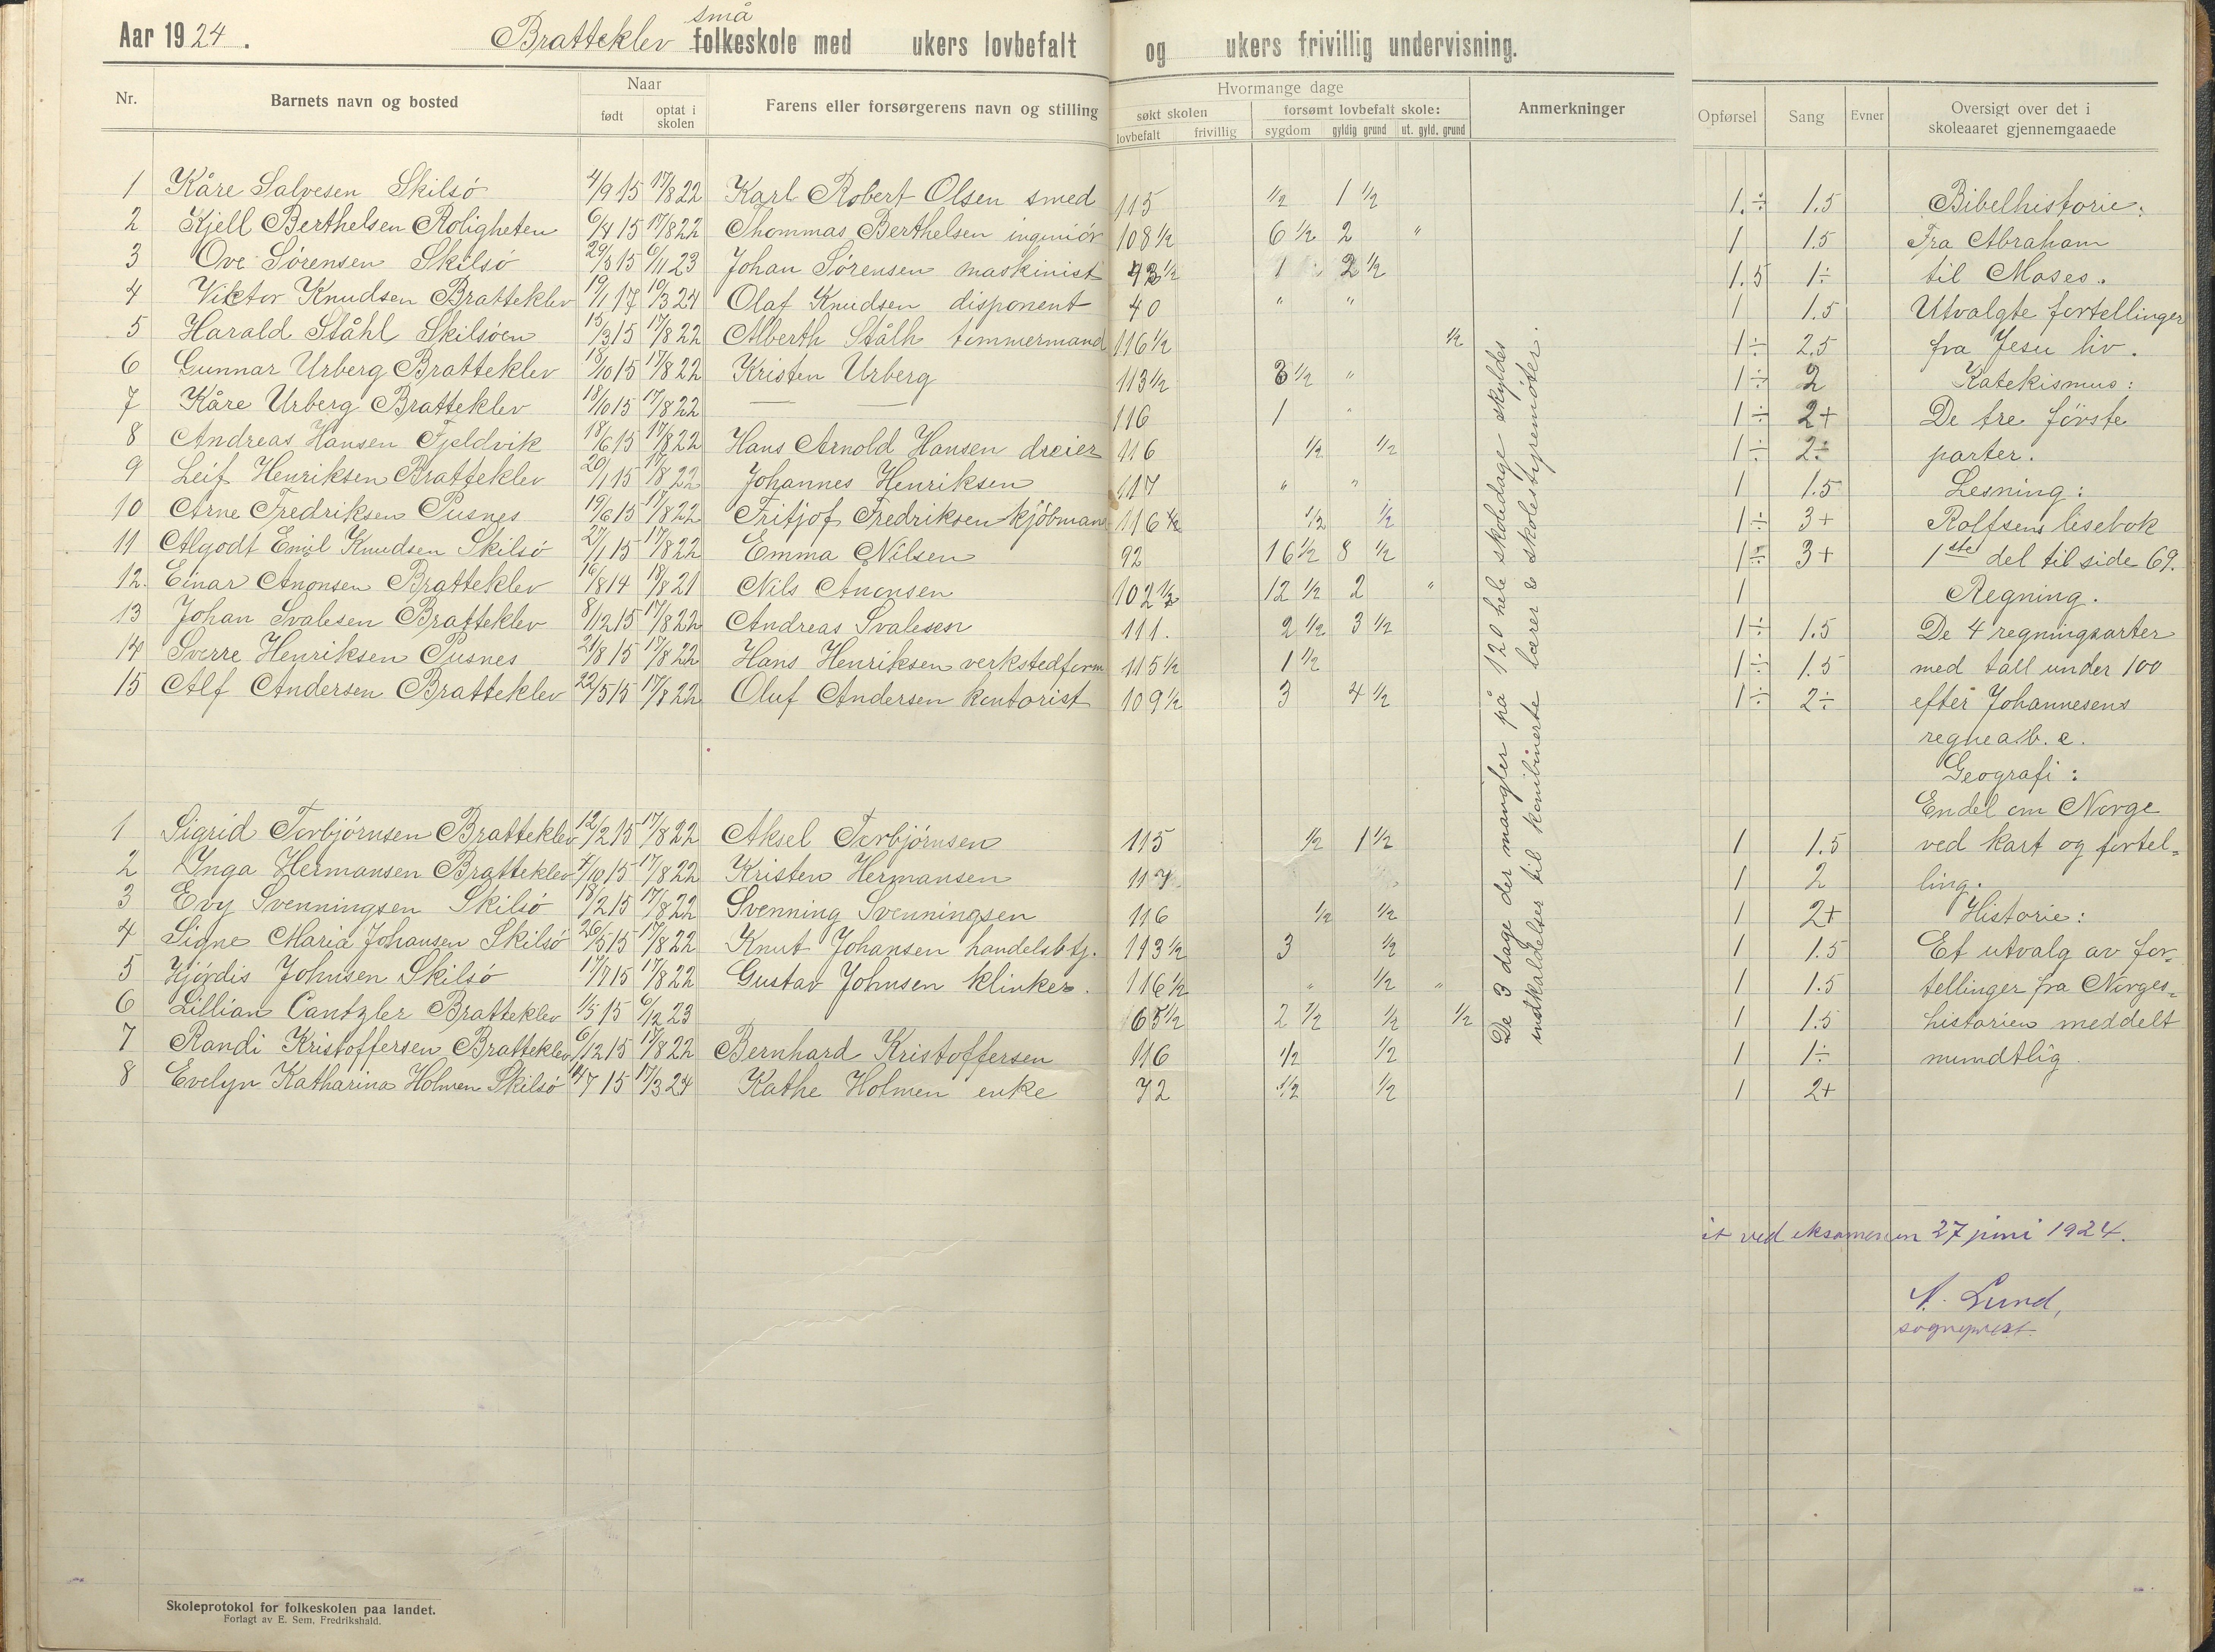 Aar 1924.
små
Bratteklev folkeskole med ukers lovbefalt og ukers frivillig undervisning.
Nr. Barnets navn og bosted Naar født optat i skolen Farens eller forsørgerens navn og stilling
Hvormange dage søkt skolen lovbefalt frivillig forsømt lovbefalt skole: sygdom gyldig grund ut. gyld. grund Anmerkninger
Opførsel Sang Evner Oversigt over det i skoleaaret gjennemgaaede
1 Kåre Salvesen Skilsö 4/9 15 17/8 22 Karl Robert Olsen smed 115 1/2 1 1/2 1.÷ 1.5 Bibelhistorie:
2 Kjell Berthelsen Roligheten 15 17/8 22 Thommas Berthelsen ingeniör 108 1/2 6 1/2 2 " 1 1.5 Fra Abraham
3 Ove Sörensen Skilsö 29/3 15 6/11 23 Johan Sörensen maskinist 1 2 1/2 1.5 1÷ til Moses.
4 Viktor Knudsen Bratteklev 19/1 17 10/3 24 Olaf Knudsen disponent 40 " " 1 1.5 Utvalgte fortellinger
5 Harald Ståhl Skilsöen 15/3 15 17/8 22 Alberth Stålh tömmermand 116 1/2 1/2 1÷ 2.5 fra Jesu liv.
6 Gunnar Urberg Bratteklev 18/10 15 17/8 22 Kristen Urberg 113 1/2 3 1/2 " 1÷ 2 Katekismus:
7 Kåre Urberg Bratteklev 18/10 15 17/8 22 — — 116 1 " 1÷ 2+ De tre förste
8 Andreas Hansen Fjeldvik 18/6 15 17/8 22 Hans Arnold Hansen dreier 116 1/2 1/2 1÷ 2÷ parter.
9 Leif Henriksen Bratteklev 20/1 15 17/8 22 Johannes Henriksen 117 " " 1 1.5 Lesning:
10 Arne Fredriksen Pusnes 19/6 15 17/8 22 Fritjof Fredriksen kjöbmann 116 1/2 1/2 1/2 1÷ 3+ Rolfsens lesebok
11 Algodt Emil Knudsen Skilsö 27/1 15 17/8 22 Emma Nilsen 92 16 1/2 8 1/2 1÷ 3+ 1ste del til side 69.
12. Einar Anonsen Bratteklev 16/8 14 18/8 21 Nils Anonsen 102 1/2 12 1/2 2 " 1 Regning.
13 Johan Svalesen Bratteklev 8/12 15 17/8 22 Andreas Svalesen 111. 2 1/2 3 1/2 1÷ 1.5 De 4 regningsarter
14 Sverre Henriksen Pusnes 21/8 15 17/8 22 Hans Henriksen verkstedform 115 1/2 1 1/2 1÷ 1.5 med tall under 100
15 Alf Andersen Bratteklev 22/5 15 17/8 22 Oluf Andersen kontorist 109 1/2 3 4 1/2 1÷ 2÷ efter Johannesens
regnea.b.c.
Geografi:
Endel om Norge
1 Sigrid Torbjörnsen Bratteklev 12/2 15 17/8 22 Aksel Torbjörnsen 115 1/2 1 1/2 1 1.5 ved kart og fortel=
2 Inga Hermansen Bratteklev 7/10 15 17/8 22 Kristen Hermansen 117 1 2 ling.
3 Evy Svenningsen Skilsö 18/2 15 17/8 22 Svenning Svenningsen 116 1/2 1/2 1 2+ Historie:
4 Signe Maria Johansen Skilsö 26/5 15 17/8 22 Knut Johansen handelsbtj. 113 1/2 3 1/2 1 1.5 Et utvalg av for=
5 Hjördis Johnsen Skilsö 17/7 15 17/8 22 Gustav Johnsen klinker. 116 1/2 " 1/2 " 1 1.5 tellinger fra Norges=
6 Lillian Cantzler Bratteklev 1/5 15 6/12 23 65 1/2 2 1/2 1/2 1/2 1 1.5 historien meddelt
7 Randi Kristoffersen Bratteklev 6/12 15 17/8 22 Bernhard Kristoffersen 116 1/2 1/2 1 1÷ mundtlig.
8 Evelyn Katharina Holmen Skilsö 14/7 15 17/3 24 Kathe Holmen enke 72 1/2 1/2 1 2+
De 3 dage der mangler på 120 hele skoledage skyldes
innkaldelser til kombinerte lærer & skolestyremöter.
ved eksamenen 27 juni 1924.
N. Lund,
sogneprest.
Skoleprotokol for folkeskolen paa landet.
Forlagt av E. Sem, Fredrikshald.